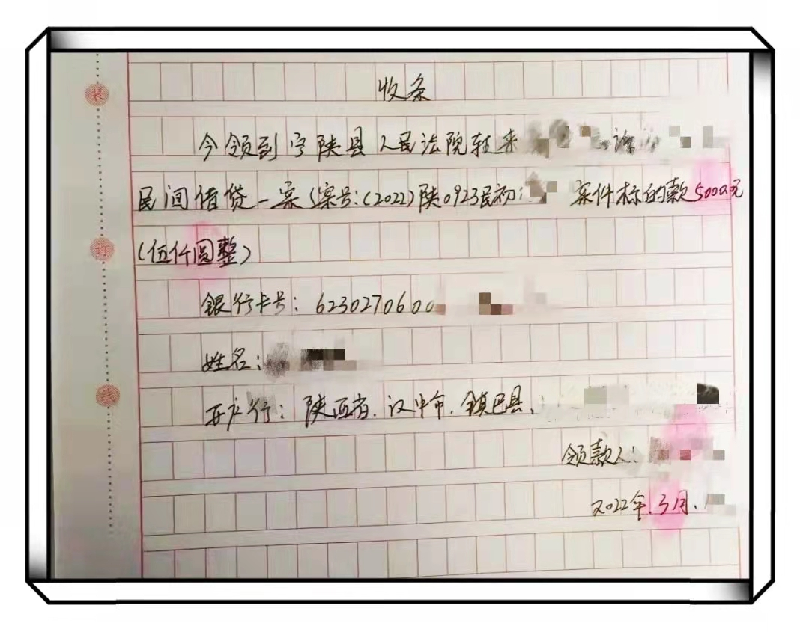 收条
今领到宁陕县人民法院转来 诉
民间借贷一案(案号:(2022)陕0923民初: 案件标的款5000元
(伍仟圆整)
银行卡号:623027060
姓名:
开户行:陕西省.汉中市.镇巴县、
领款人:
2022年.3月.
装
订
线